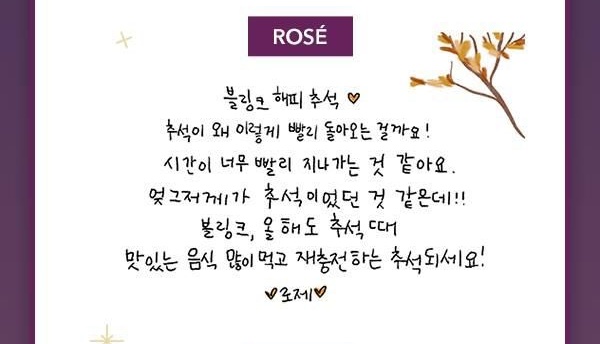 ROSÉ
블링크 해피 추석 🧡
추석이 왜 이렇게 빨리 돌아오는 걸까요!
시간이 너무 빨리 지나가는 것 같아요.
엊그저께가 추석이였던 것 같은데!!
블링크, 올해도 추석 때
맛있는 음식 많이 먹고 재충전하는 추석되세요!
🧡로제🧡